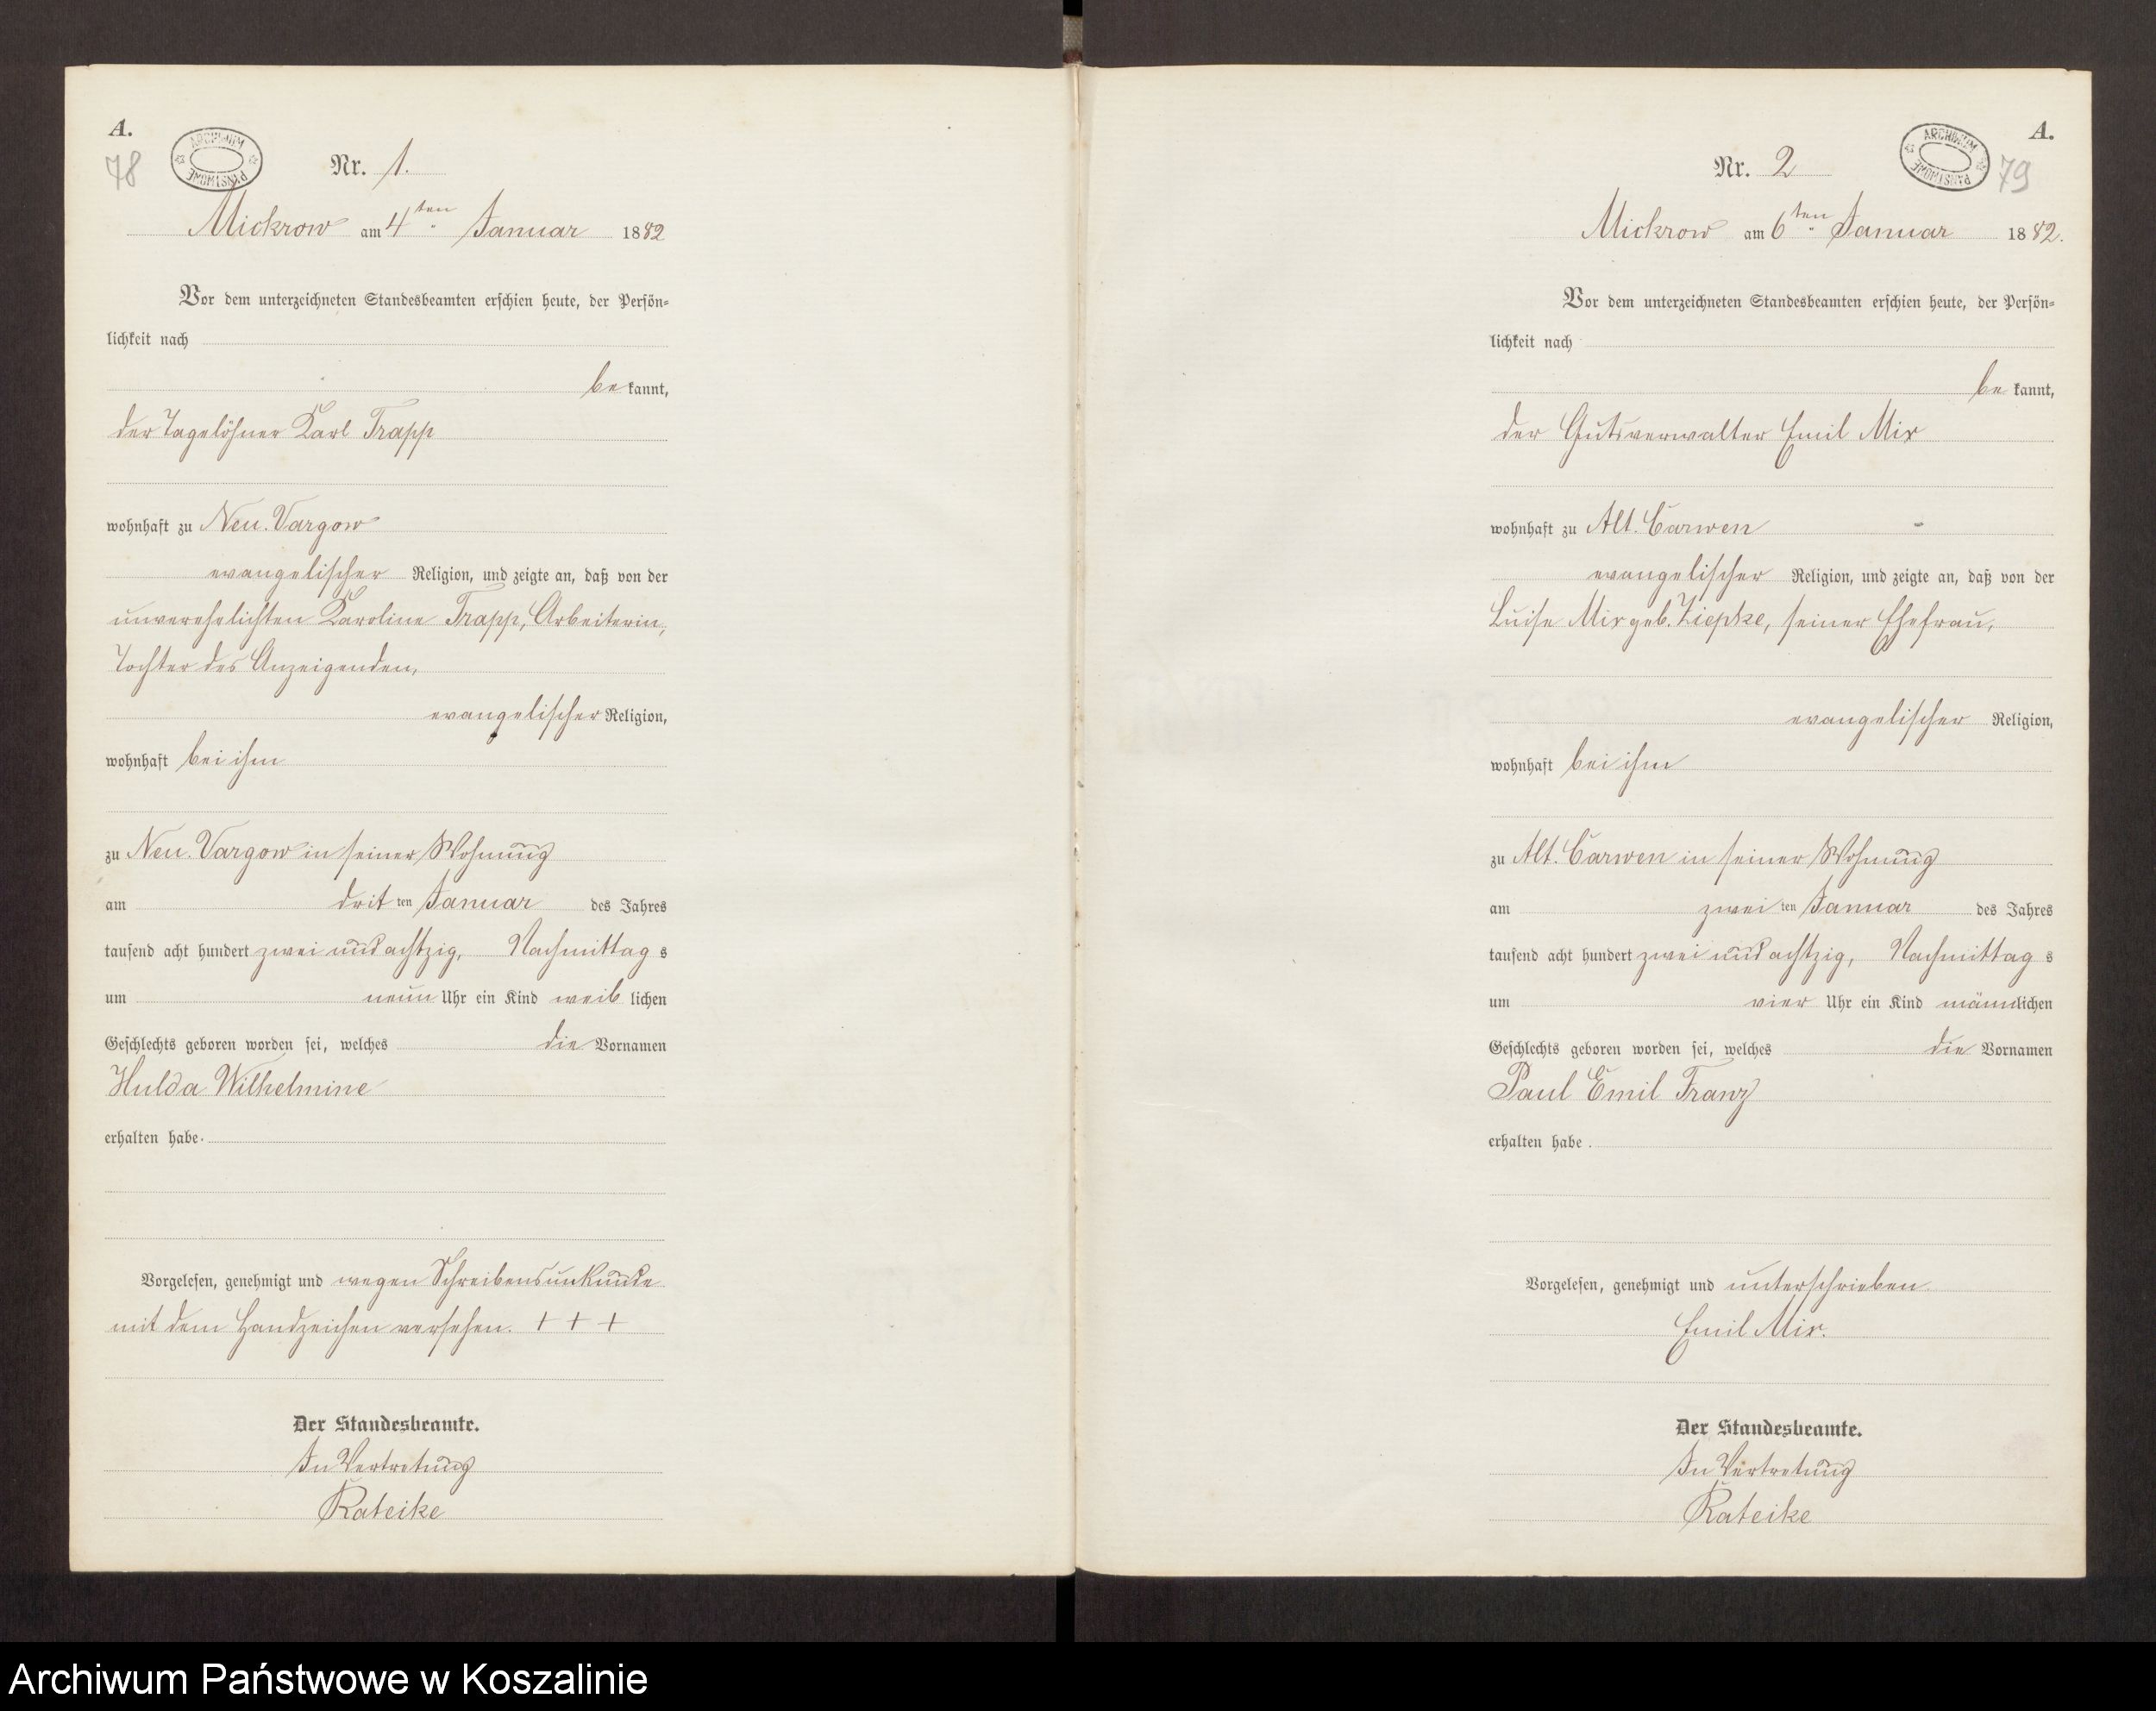 A.
78
ARCHIWUM PAŃSTWOWE
Nr. 1.
Mickrow am 4ten Januar 1882
Vor dem unterzeichneten Standesbeamten erschien heute, der Persön=
lichkeit nach
bekannt,
der Tagelöhner Karl Trapp
wohnhaft zu Neu. Vargow
evangelischer Religion, und zeigte an, daß von der
unverehelichten Karoline Trapp, Arbeiterin,
Tochter des Anzeigenden,
evangelischer Religion,
wohnhaft bei ihm
zu Neu. Vargow in seiner Wohnung
am dritten Januar des Jahres
tausend acht hundert zwei und achtzig, Nachmittags
um neun Uhr ein Kind weiblichen
Geschlechts geboren worden sei, welches die Vornamen
Hulda Wilhelmine
erhalten habe.
Vorgelesen, genehmigt und wegen Schreibensunkunde
mit dem Handzeichen versehen. + + +
Der Standesbeamte.
In Vertretung
Rateike
A.
79
ARCHIWUM PAŃSTWOWE
Nr. 2
Mickrow am 6ten Januar 1882.
Vor dem unterzeichneten Standesbeamten erschien heute, der Persön=
lichkeit nach
bekannt,
der Gutsverwalter Emil Mix
wohnhaft zu Alt. Carwen
evangelischer Religion, und zeigte an, daß von der
Luise Mix geb. Ziepke, seiner Ehefrau,
evangelischer Religion,
wohnhaft bei ihm
zu Alt. Carwen in seiner Wohnung
am zweiten Januar des Jahres
tausend acht hundert zwei und achtzig, Nachmittags
um vier Uhr ein Kind männlichen
Geschlechts geboren worden sei, welches die Vornamen
Paul Emil Franz
erhalten habe.
Vorgelesen, genehmigt und unterschrieben
Emil Mix.
Der Standesbeamte.
In Vertretung
Rateike
Archiwum Państwowe w Koszalinie